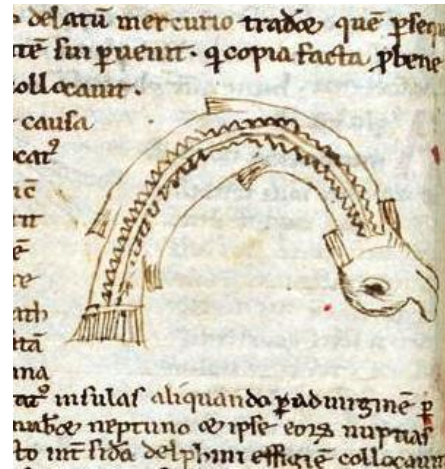 delatū mercurio tradoe quē pseq
tē sui puenit. q copia facta pbene
ollocauit.
causa
ocat⁹
ic
rit
ē
re
ath
itā
na
tat⁹ insulas aliquando padurginē p
nuboe neptuno oe ipse eoꝝ nuptias
to int sida delphini effigiē collocauit